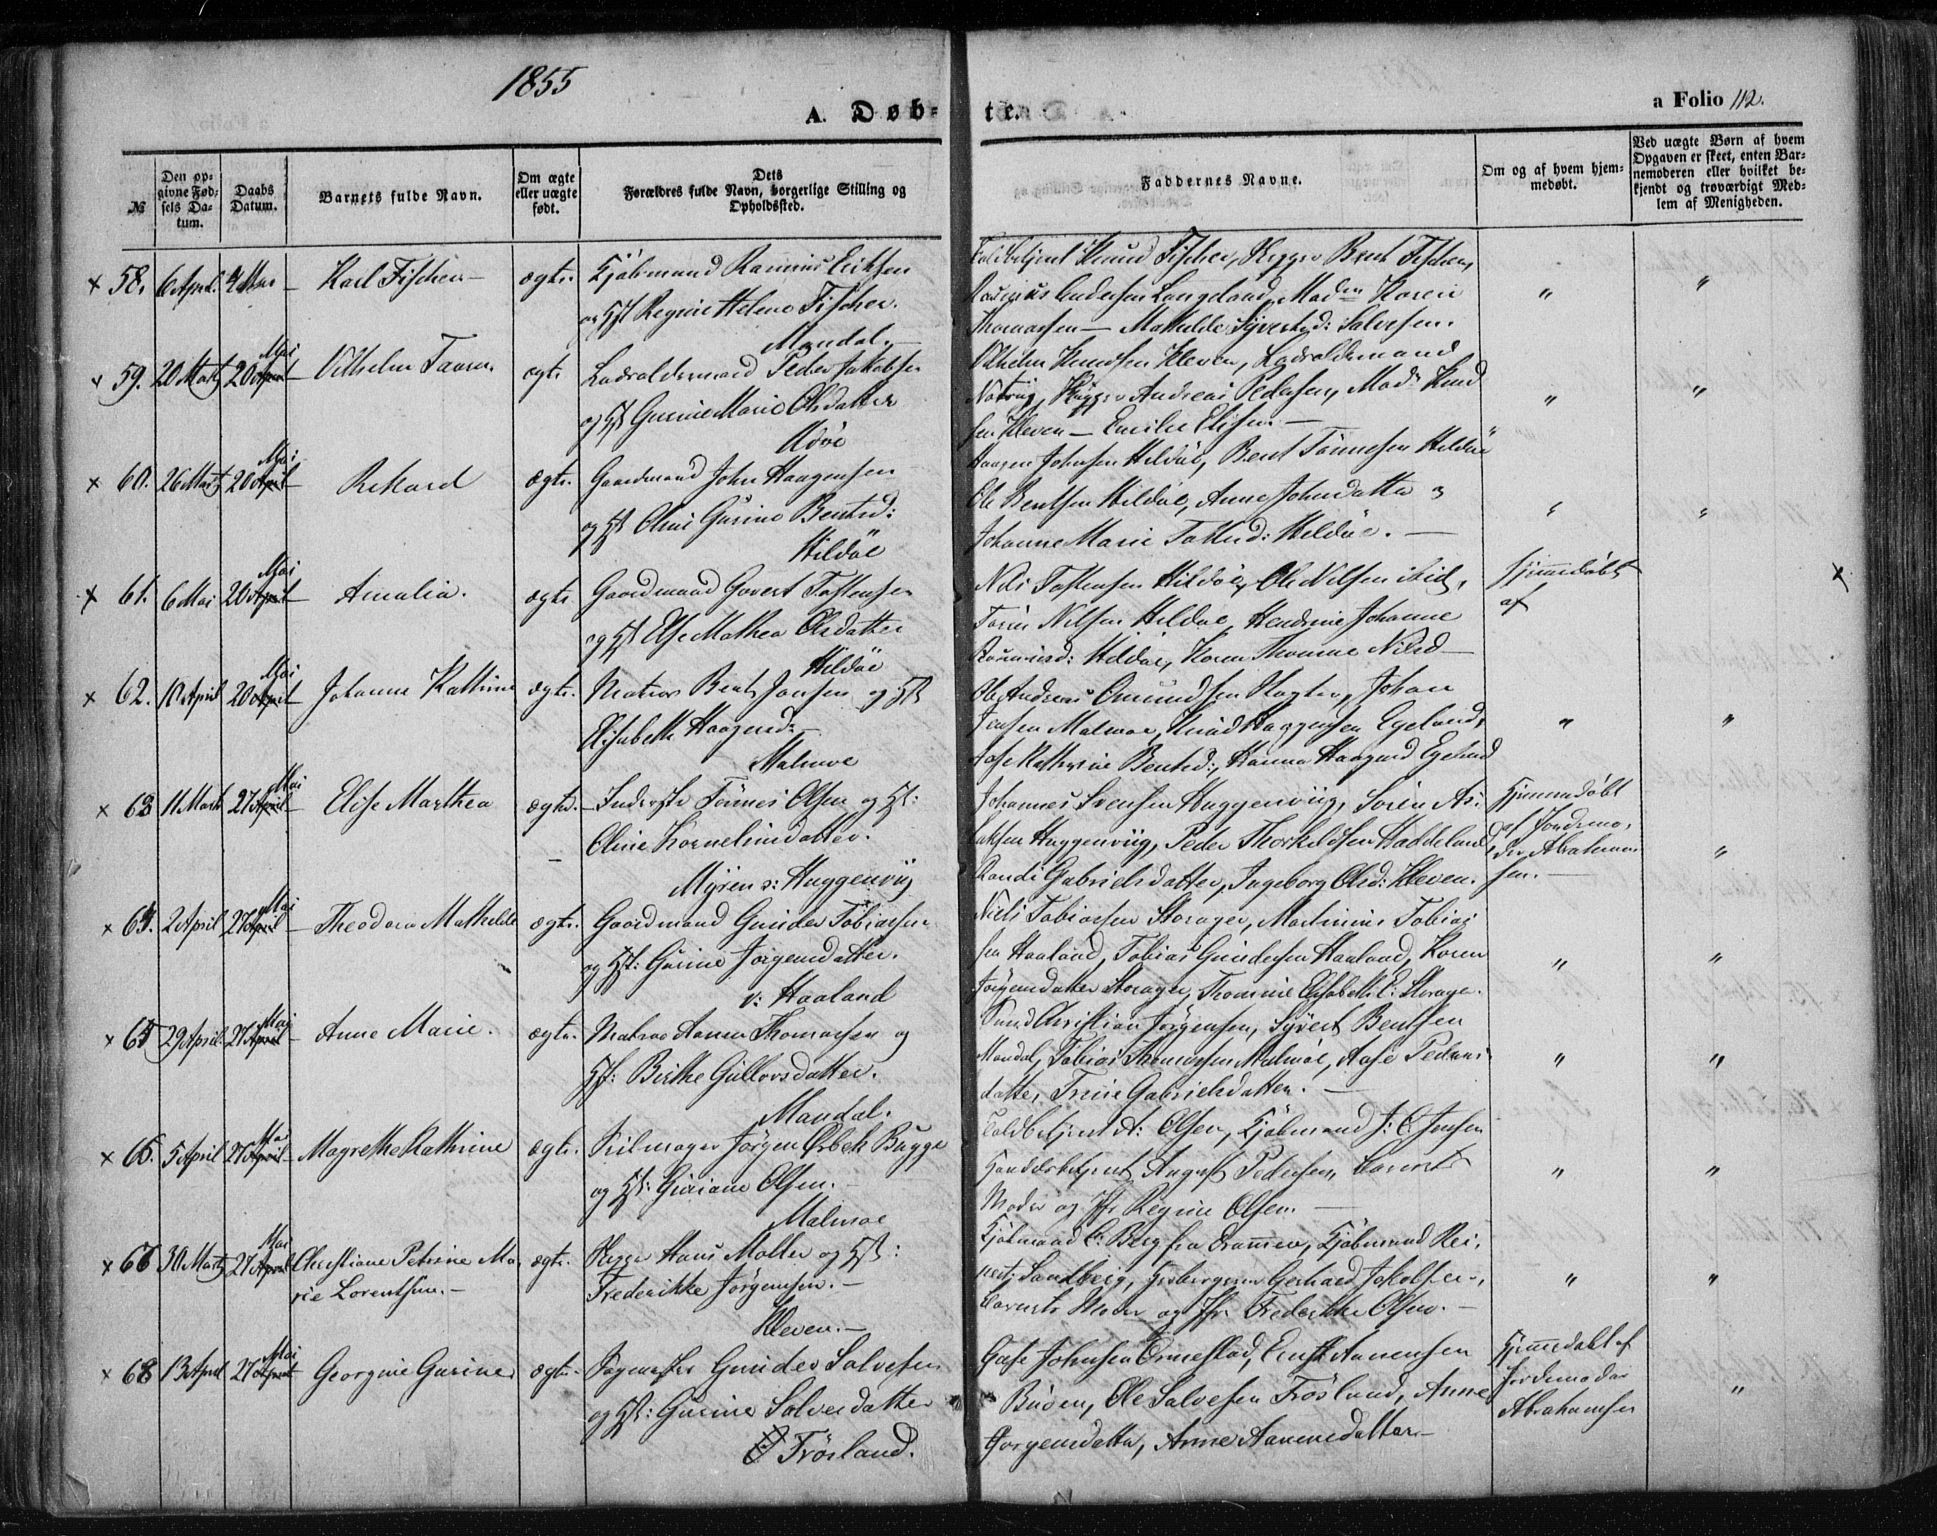 1855
A. Døb-
te.
a Folio 112.
№
Den op-
givne Fød-
sels Da-
tum.
Daabs
Datum.
Barnets fulde Navn.
Om ægte
eller uægte
født.
Dets
Forældres fulde Navn, borgerlige Stilling og
Opholdssted.
Faddernes Navne.
Om og af hvem hjem-
medøbt.
Ved uægte Børn af hvem
Opgaven er skeet, enten Bar-
nemoderen eller hvilket be-
kjendt og troværdigt Med-
lem af Menigheden.
58. 6 April. 4 Mai Karl Fischer ægte.
Kjøbmand Rasmus Eriksen
og Hst Regine Helene Fischer.
Mandal.
Knud Fischer, Bent Fischer,
Andersen Langeland, Madm Karen
Thomassen — Mathilde Syverts d: Salvesen.
"
"
59. 20 Marts 20 April Mai Vilhelm ægte
Lodsoldermand Peder Jakobsen
og Hst Gurine Marie Olsdatter
Udøe
Vilhelm Knudsen Kleven, Lodsoldermand
Andreas Pedersen, Mad: Knud
sen Kleven — Emilie Elisen.
"
"
60. 26 Marts 20 April Mai Rikard ægte.
Gaardmand John Haagensen
og Hst Oline Gurine Bentsd:
Hildøe
Haagen Johnsen Hildøe, Bent Tønnesen Hildøe
Ole Bentsen Hildøe, Anne Johnsdatter og
Johanne Marie Hildøe.
"
"
61. 6 Mai 20 April Mai Amalia. ægte
Gaardmand Govert Tostensen
og Hst Else Mathea Olsdatter
Hildøe
Nils Tostensen Hildøe, Ole Nilsen ibid,
Nilsen Hildøe, Hendrine Johanne
Hildøe, Karen Thomine Nilsd
Hjemmedøbt
af
62. 18 April 20 April Mai Johanne Kathrine ægte.
Matros Bent Jansen og Hst
Elisabeth Haagensd:
Malmøe
Ole Andreas Omundsen Jansen Malmøe, Knud Haagensen Egeland,
Aase Kathrine Bentsd:, Hanna Haagensd Egeland
"
"
63 11 Marts 27 April Mai Elise Marthea ægte.
Inderste Tønnes Olsen og Hst:
Oline Korneliusdatter.
Myren v: Haggenviig
Johannes Svensen Haggenviig, Søren As:
laksen Haggenviig, Peder Thorkildsen Haddeland
Randi Gabrielsdatter, Ingeborg Olsd: Kleven.
Hjemmedøbt
af Jordemo-
der Abraham-
sen.
"
64. 2 April 27 April Mai Theodora Mathilde ægte.
Gaardmand Gunder Tobiassen
og Hst: Gurine Jørgensdatter.
v: Haaland
Niels Tobiassen Storager, Martinius Tobias
sen Haaland, Tobias Gundersen Haaland, Karen
Jørgensdatter Storager, Thomine Elisabeth Storager.
"
"
65 29 April 27 April Mai Anne Marie. ægte.
Matros Aanen Thomassen og
Hst: Birthe Gullovsdatter.
Mandal.
Christian Jørgensen, Syvert Bentsen
Mandal, Tobias Thomassen Malmøe, Aase Peders:
datter, Trine Gabrielsdatter.
"
"
66. 5 April 27 April Mai Magrethe Kathrine ægte.
Seilmager Jørgen Orbek Bugge
og Hst: Guriane Olsen.
Malmøe
Toldbetjent A: Olsen, Kjøbmand J: C. Jensen
Handelsbetjent August Pedersen, Barnets
Moder og Jfr Regine Olsen.
"
"
67 30 Marts 27 April Mai Christiane Petrine Ma
rie Lorentsen. ægte.
Skipper Hans Møller og Hst:
Frederikke Jørgensen.
Kleven.
Kjøbmand C: Berg fra Drammen, Kjøbmand Rei-
nert Sandberg, Gerhard Jakobsen,
Barnets Moder og Jfr: Frederikke Olsen.
"
"
68 13 April 27 April Mai Georgine Gurine ægte.
Gunder Salvesen
og Hst: Gurine Salvesdatter
Frøsland.
Johnsen Ormestad, Aanensen
Buøen, Ole Salvesen Frøsland, Anne
Jørgensdatter, Anne Aanensdatter
Hjemmedøbt af
Jordemoder
Abrahamsen
"